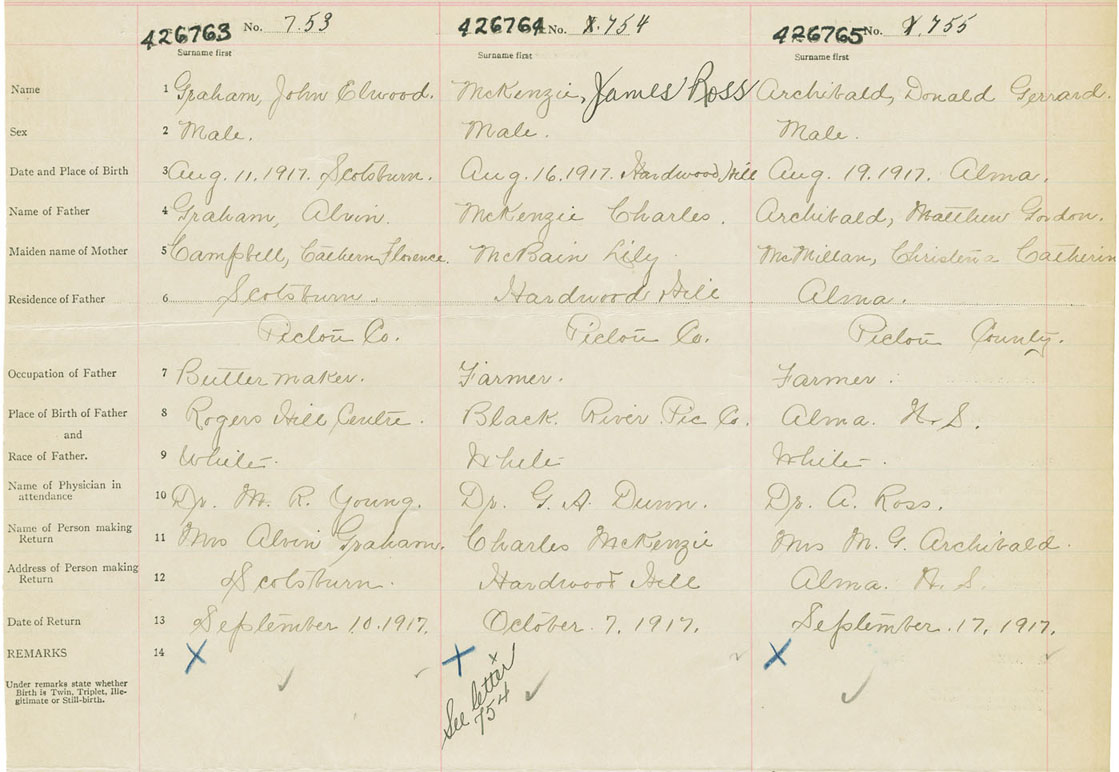 426763 No. 753 426764 No. X.754 426765 No. X.755
Surname first Surname first Surname first
Name 1 Graham, John Elwood. McKenzie, James Ross Archibald, Donald Gerrard.
Sex 2 Male. Male. Male.
Date and Place of Birth 3 Aug. 11. 1917. Scotsburn. Aug. 16. 1917. Hardwood Hill Aug. 19. 1917. Alma.
Name of Father 4 Graham, Alvin. McKenzie Charles. Archibald, Matthew Gordon.
Maiden name of Mother 5 Campbell, Cathern Florence. McBain Lily. McMillan, Christena Catherin
Residence of Father 6 Scotsburn. Hardwood Hill Alma.
Pictou Co. Pictou Co. Pictou County.
Occupation of Father 7 Butter maker. Farmer. Farmer.
Place of Birth of Father 8 Rogers Hill Centre. Black River Pic Co. Alma. N.S.
and
Race of Father. 9 White. White White.
Name of Physician in
attendance 10 Dr. M. R. Young. Dr. G. A. Dunn. Dr. A. Ross.
Name of Person making
Return 11 Mrs Alvin Graham. Charles McKenzie Mrs M. G. Archibald.
Address of Person making
Return 12 Scotsburn. Hardwood Hill Alma. N.S.
Date of Return 13 September 10. 1917. October. 7. 1917. September. 17. 1917.
REMARKS 14 X X X
x
See letter
754
Under remarks state whether
Birth is Twin, Triplet, Ille-
gitimate or Still-birth.